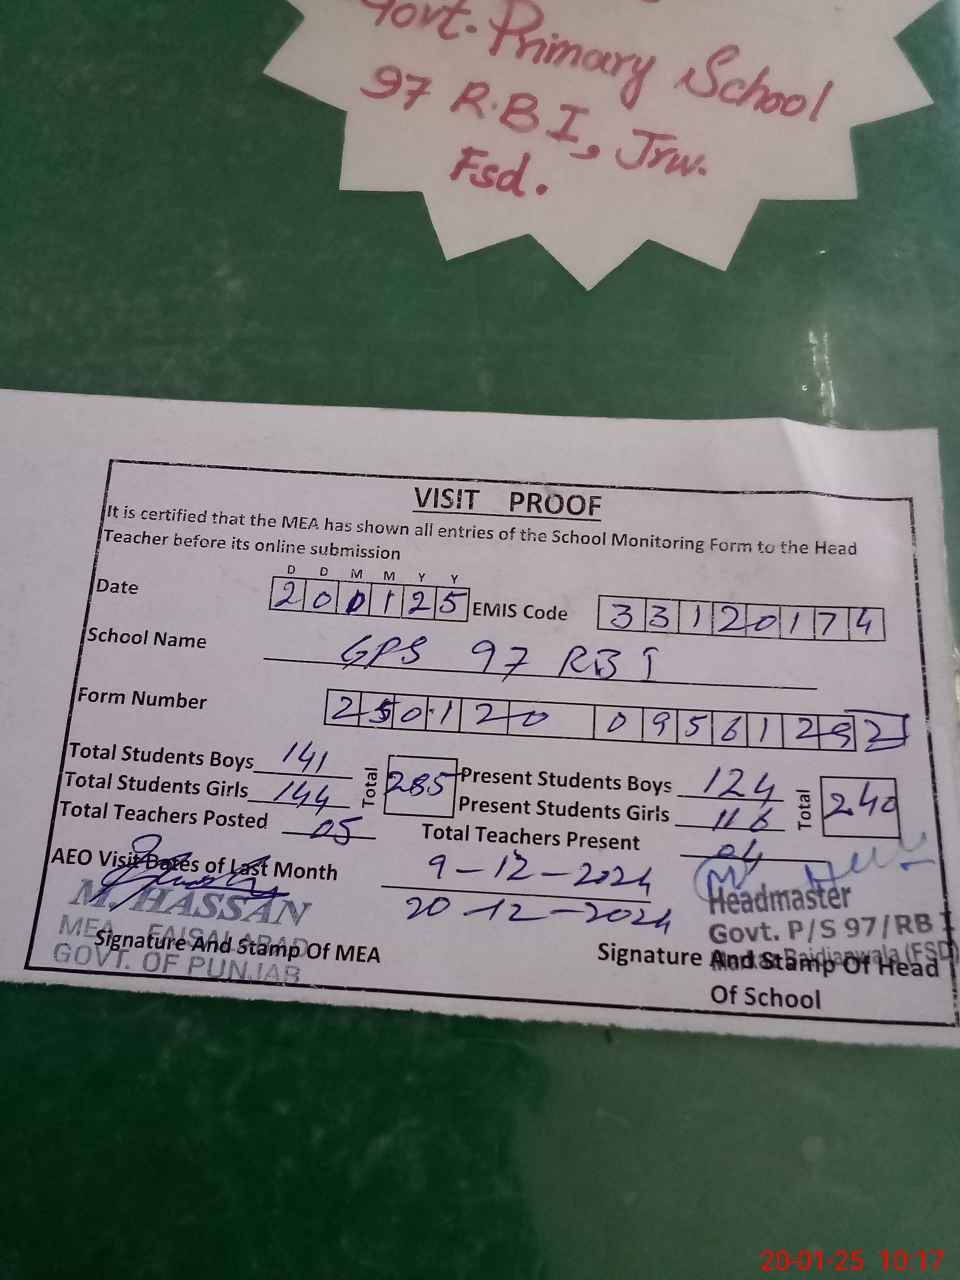 Govt. Primary School
97 R.B I, Jrw.
Fsd.
VISIT PROOF
It is certified that the MEA has shown all entries of the School Monitoring Form to the Head
Teacher before its online submission
D D M M Y Y
Date 200125 EMIS Code 33120174
School Name GPS 97 RB I
Form Number
Total Students Boys 141 Total 285 Present Students Boys 124 Total 240
Total Students Girls 144 Present Students Girls 116
Total Teachers Posted 05 Total Teachers Present 04
AEO Visit Dates of Last Month 9-12-2024
20-12-2024
M. HASSAN
MEA FAISALABAD
GOVT. OF PUNJAB
Signature And Stamp Of MEA
Headmaster
Govt. P/S 97/RB I
(FSD)
Signature And Stamp Of Head
Of School
20-01-25 10:17